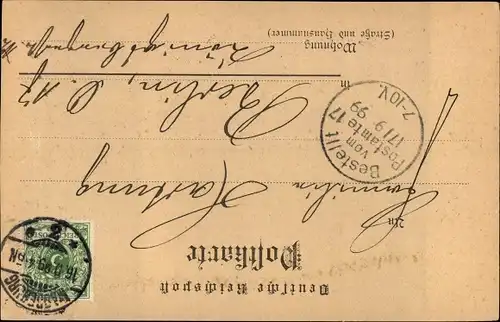 Deutsche Reichspost
Postkarte
An
Familie Hartung
in Berlin,
Wohnung
(Straße und Hausnummer)
Bestellt
vom
Postamte 17
17/9 99
7-10V.